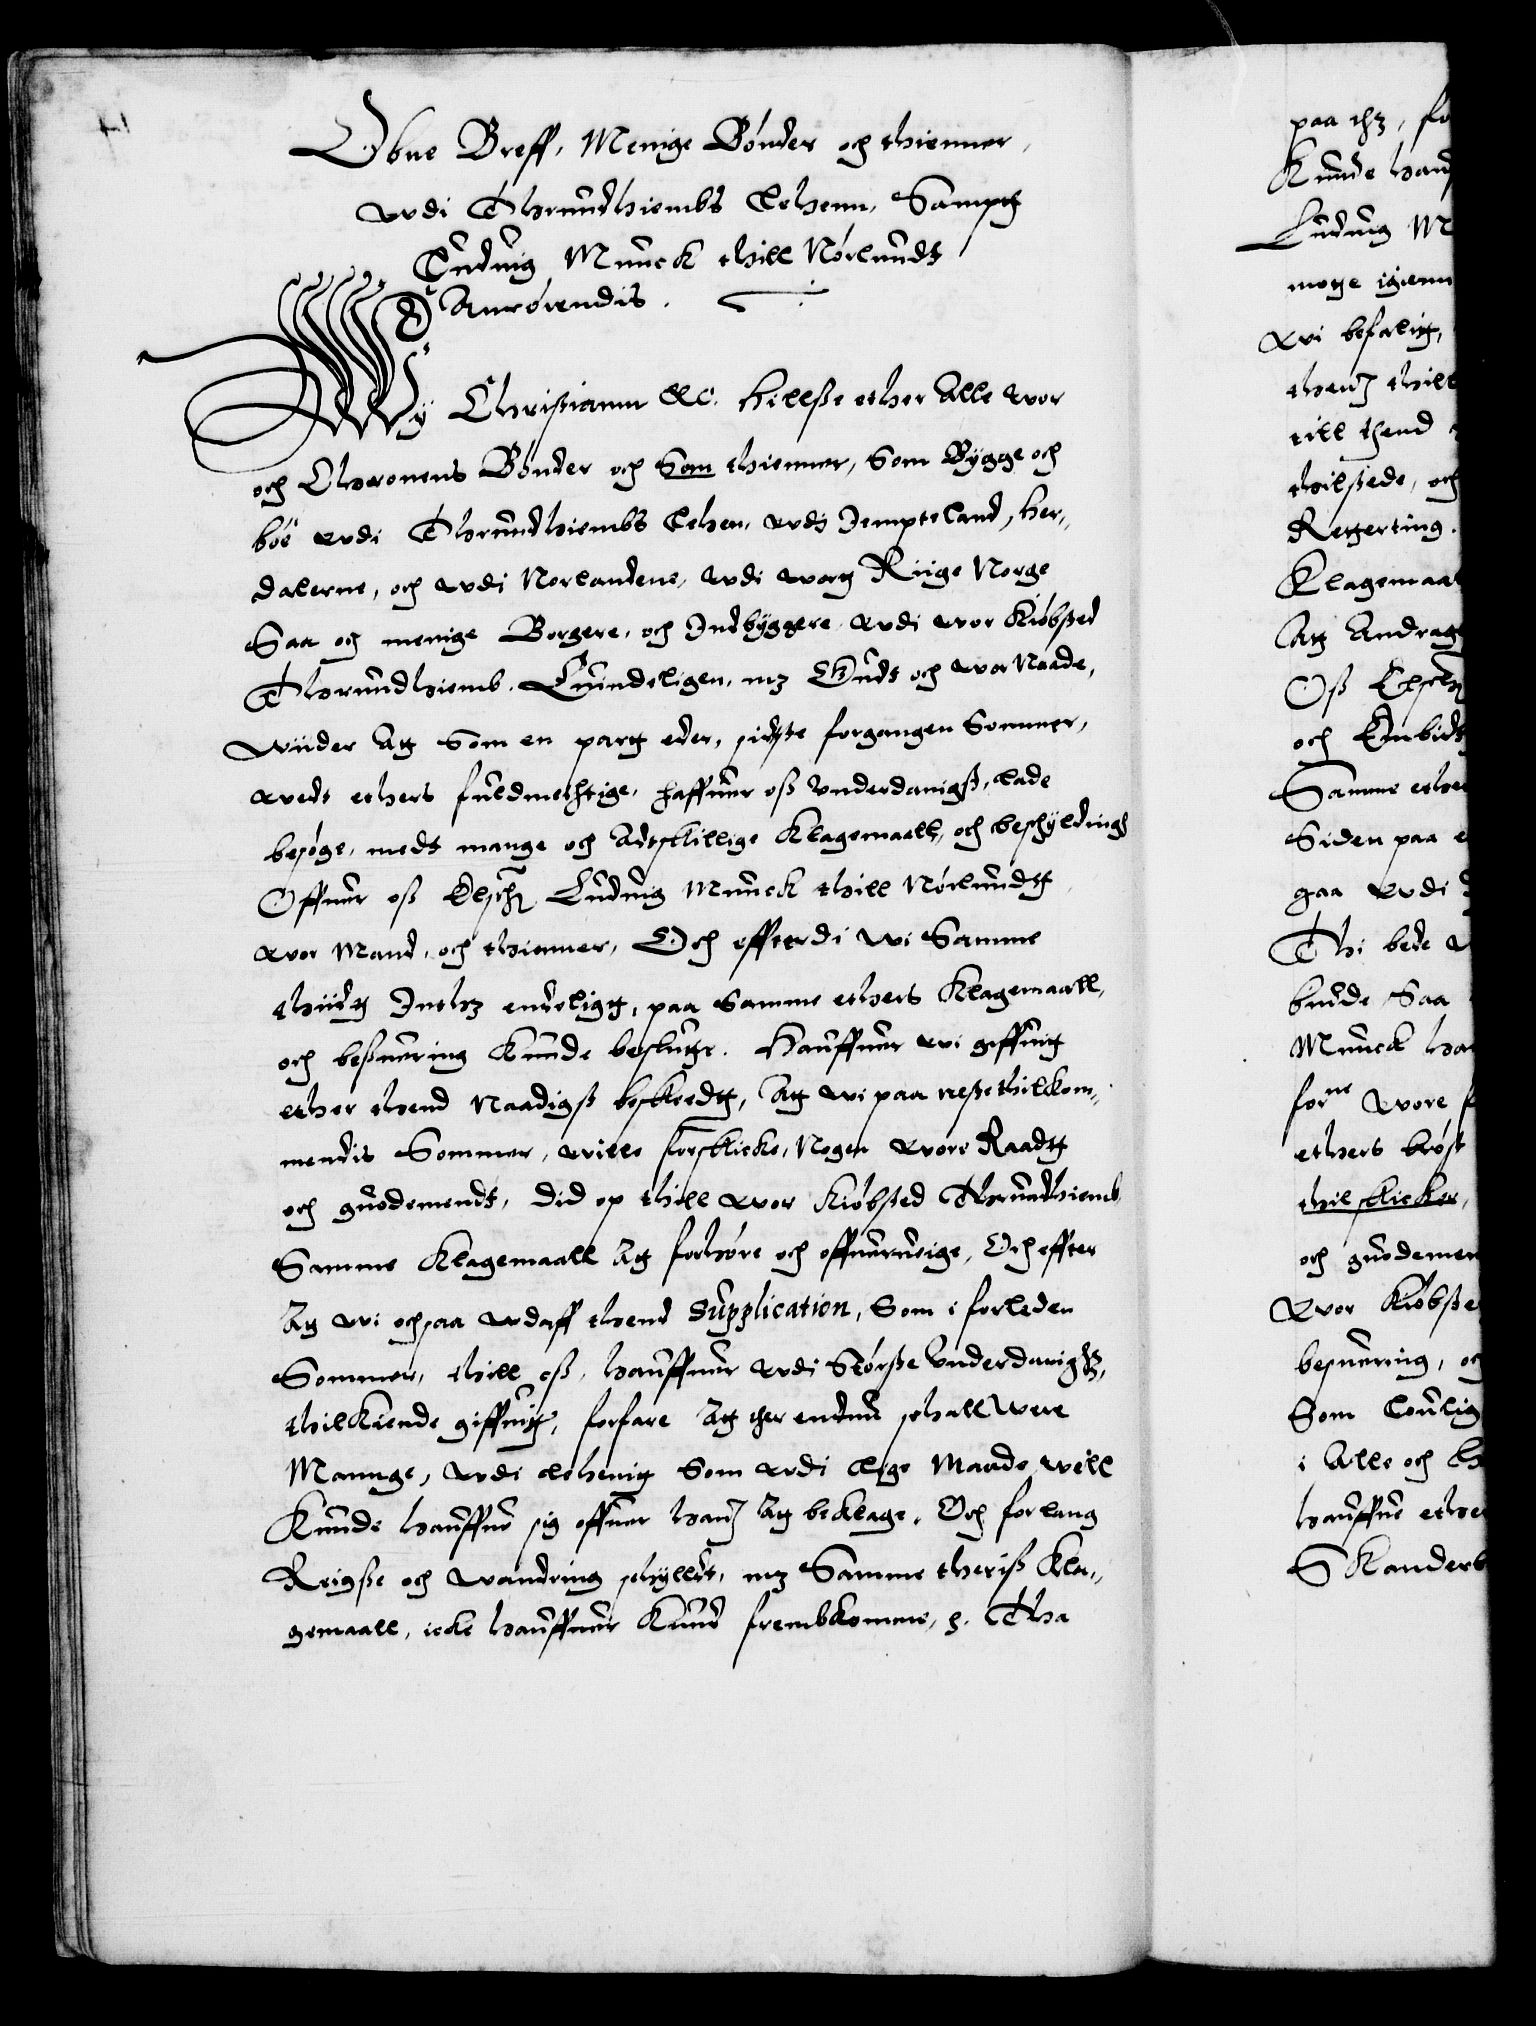 Obne Breff, Menige Bønder och thienner,
wdi Thrundhiembs Lehenn, Sampt
Ludvig Munck thill Nørlundt
Anrørendis.
Wy Christiann &c. Hillße ether Alle wor
och Chronens Bønder och Som thienner, Som Bygge och
boe wdi Thrundhiembs Lehen, wdj Jempteland, Her„
dalerne, och wdi Norlandene, wdi wortt Riige Norge
Saa och menige Borgere, och Indbyggere wdi wor Kiøbsted
Thrundhiemb. Kuindeligen, mz Gudt och wor Naade,
Wiider Att Som en partt eder, sidste forgangen Sommer,
wedt ethers fuldmechtige, haffuer oß Underdanigst, lade
besøge, medt mange och Adtskillige Klagemaall, och beschyldning
Offuer oß Elsch: Ludvig Munck thill Nørlundtt
wor Mand, och thienner, Och effterdi wi Samme
thiidtt Inthz endeligtt, paa Samme ethers Klagemaall,
och beßuering Kunde beslutte. Hauffuer wi giffuit
ether thend Naadigst beskeedtt, Att wi paa neste thilkom„
mendis Sommer, wille forskicke, Nogen wore Raadtt
och guodemendt, did op thill wor Kiøbsted Thrundhiemb
Samme Klagemaall Att forhøre och offuerueige, Och effter
Att wi ochsaa wdaff thend Supplication, Som i forleden
Sommer, thill oß, hauffuer wdi Største Underdanighz,
thilkiende giffuit, forfare Att ther endnu schall were
Mannge, wdi Lehenit Som wdi Lige Maade will
Kunde hauffue sig offuer hanz Att beklage, Och for lang
Reigße och wandring schyldt, mz Samme theriß Kla„
gemaall, icke hauffuer Kund frembkomme, &. Tha
paa thz, fo
Kunde hau
Ludvig M
motte igienn
wi befalit,
thenz thill
till thend
thilstede, och
Rettertting.
Klagemaal
Att Andrage
Oß Elsch
och Embidt
Samme ethe
Siden paa e
gaa wdi
Thi bede w
bude Saa
Munck ha
forne wore f
ethers brøst
thil skicker,
och guodemen
wor Kiøbste
besuering, oc
Som Loulig
i Alle och h
hauffue ethe
Skanderb